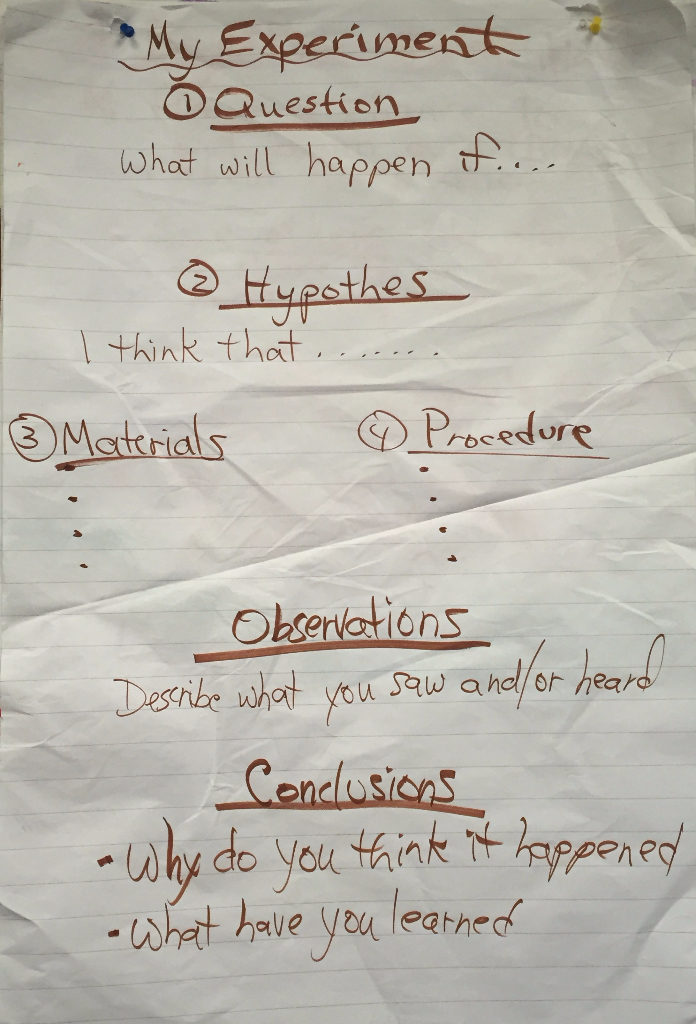 My Experiment
① Question
What will happen if....
② Hypothes
I think that ........
③ Materials
④ Procedure
Observations
Describe what you saw and/or heard
Conclusions
• Why do you think it happened
• What have you learned